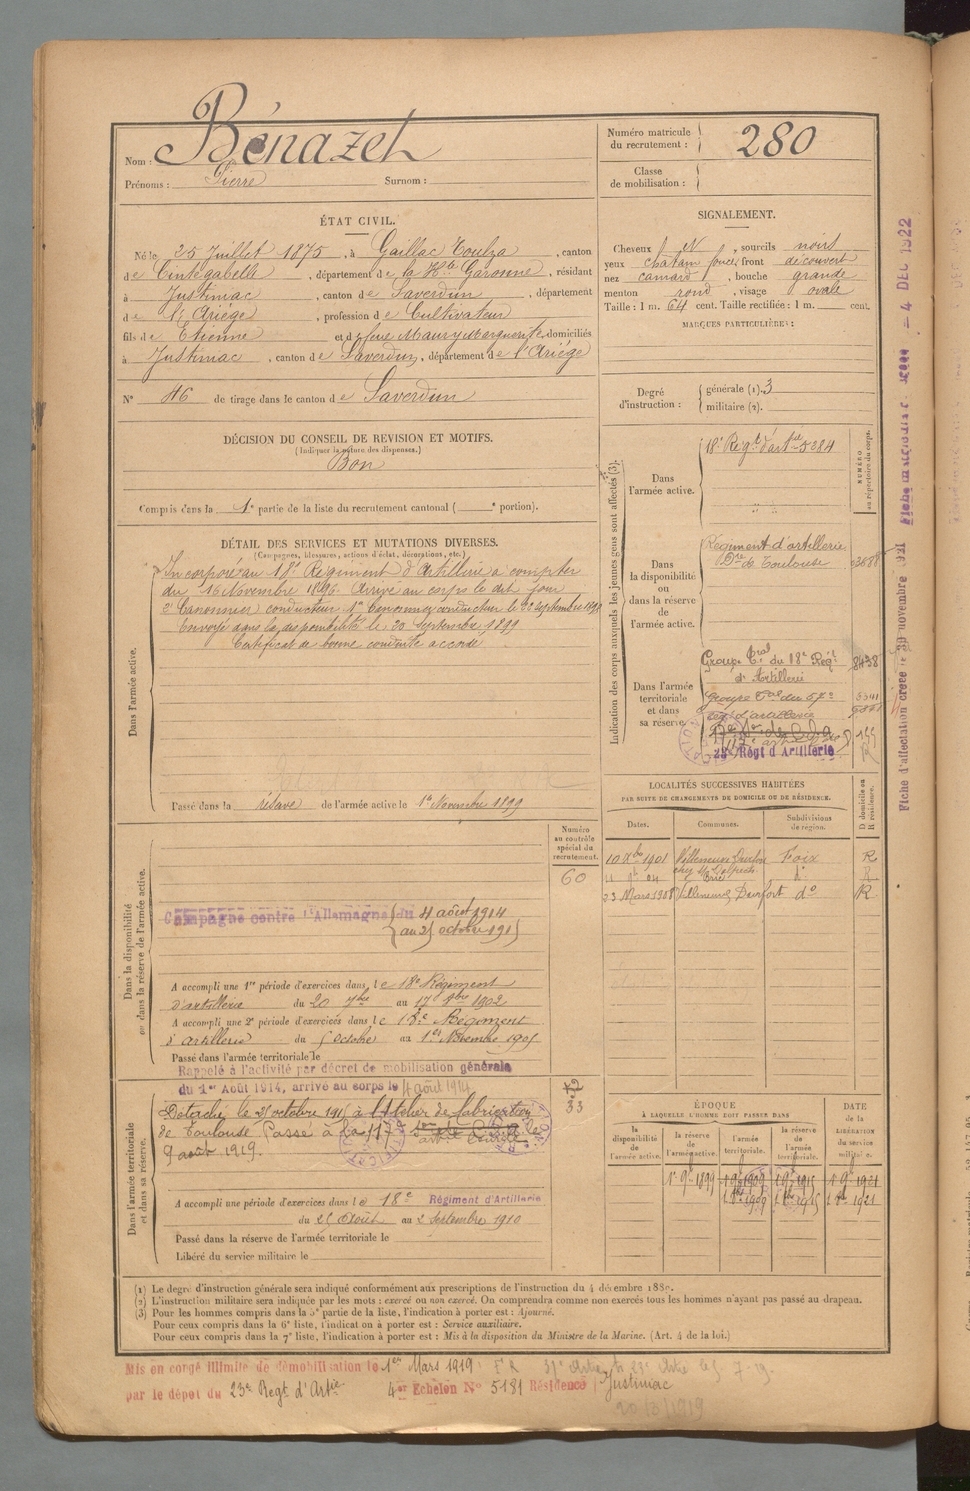 Nom : Bénazet
Prénoms : Pierre Surnom :
Numéro matricule du recrutement : 280
Classe de mobilisation :
ÉTAT CIVIL.
Né le 25 Juillet 1875, à Gaillac Toulza, canton
de Cintegabelle, département de la Hte Garonne, résidant
à Justiniac, canton de Saverdun, département
de l'Ariège, profession de Cultivateur
fils de Etienne et de feue Maury Marguerite, domiciliés
à Justiniac, canton de Saverdun, département de l'Ariège
N° 46 de tirage dans le canton de Saverdun
SIGNALEMENT.
Cheveux N, sourcils noirs
yeux chatain foncé, front découvert
nez camard, bouche grande
menton rond, visage ovale
Taille : 1 m. 64 cent. Taille rectifiée : 1 m. cent.
MARQUES PARTICULIÈRES :
Degré d'instruction : générale (1). 3
militaire (2).
DÉCISION DU CONSEIL DE REVISION ET MOTIFS.
(Indiquer la nature des dispenses.)
Bon
Compris dans la 1e partie de la liste du recrutement cantonal ( e portion).
DÉTAIL DES SERVICES ET MUTATIONS DIVERSES.
(Campagnes, blessures, actions d'éclat, décorations, etc.)
Dans l'armée active.
Incorporé au 18e Régiment d'Artillerie à compter
du 16 Novembre 1896. Arrivé au corps le dit jour
2e Canonnier conducteur. 1er Canonnier conducteur le 22 Septembre 1898
Envoyé dans la disponibilité le 20 Septembre 1899
Certificat de bonne conduite accordé
Passé dans la réserve de l'armée active le 1er Novembre 1899
Indication des corps auxquels les jeunes gens sont affectés (3).
NUMÉRO au répertoire du corps.
Dans l'armée active.
18e Régt d'artie 5284
Dans la disponibilité ou dans la réserve de l'armée active.
Régiment d'artillerie
de Toulouse
Dans l'armée territoriale et dans sa réserve.
Groupe Tal du 18e Régt 8438
d'Artillerie
Groupe Tal du 57e
rég d'artillerie
23e Régt d'Artillerie
LOCALITÉS SUCCESSIVES HABITÉES
PAR SUITE DE CHANGEMENTS DE DOMICILE OU DE RÉSIDENCE.
Dates. Communes. Subdivisions de région. D domicile ou R résidence.
10 Xbre 1901 Villeneuve Durfort Foix R
chez Mr
23 Mars 1908 Villeneuve Durfort do R
Dans la disponibilité ou dans la réserve de l'armée active.
Numéro au contrôle spécial du recrutement.
60
Campagne contre l'Allemagne du 4 août 1914
au 25 octobre 1915
A accompli une 1re période d'exercices dans le 18e Régiment
d'artillerie du 20 7bre au 17 8bre 1902
A accompli une 2e période d'exercices dans le 18e Régiment
d'artillerie du 5 Octobre au 1er Novembre 1905
Passé dans l'armée territoriale le
Rappelé à l'activité par décret de mobilisation générale
du 1er Août 1914, arrivé au corps le 4 août 1914
Dans l'armée territoriale et dans sa réserve.
33
Détaché le 25 octobre 1915 à l'Atelier de fabrication
de Toulouse. Passé à la 17e
9 août 1919.
A accompli une période d'exercices dans le 18e Régiment d'Artillerie
du 25 Août au 2 Septembre 1910
Passé dans la réserve de l'armée territoriale le
Libéré du service militaire le
ÉPOQUE
À LAQUELLE L'HOMME DOIT PASSER DANS
la disponibilité de l'armée active. la réserve de l'armée active. l'armée territoriale. la réserve de l'armée territoriale. DATE de la LIBÉRATION du service militaire.
1er 9bre 1899 1er 9bre 1909 1er 9bre 1915 1er 9bre 1921
1er 8bre 1909 1er 8bre 1915 1er 8bre 1921
(1) Le degré d'instruction générale sera indiqué conformément aux prescriptions de l'instruction du 4 décembre 1889.
(2) L'instruction militaire sera indiquée par les mots : exercé ou non exercé. On comprendra comme non exercés tous les hommes n'ayant pas passé au drapeau.
(3) Pour les hommes compris dans la 5e partie de la liste, l'indication à porter est : Ajourné.
Pour ceux compris dans la 6e liste, l'indication à porter est : Service auxiliaire.
Pour ceux compris dans la 7e liste, l'indication à porter est : Mis à la disposition du Ministre de la Marine. (Art. 4 de la loi.)
Mis en congé illimité de démobilisation le 1er Mars 1919
par le dépôt du 23e Régt d'Artie 4e Echelon N° 5181 Résidence Justiniac
20/3/1919
Fiche d'affectation créée le 30 novembre 1921
4 DEC 1922